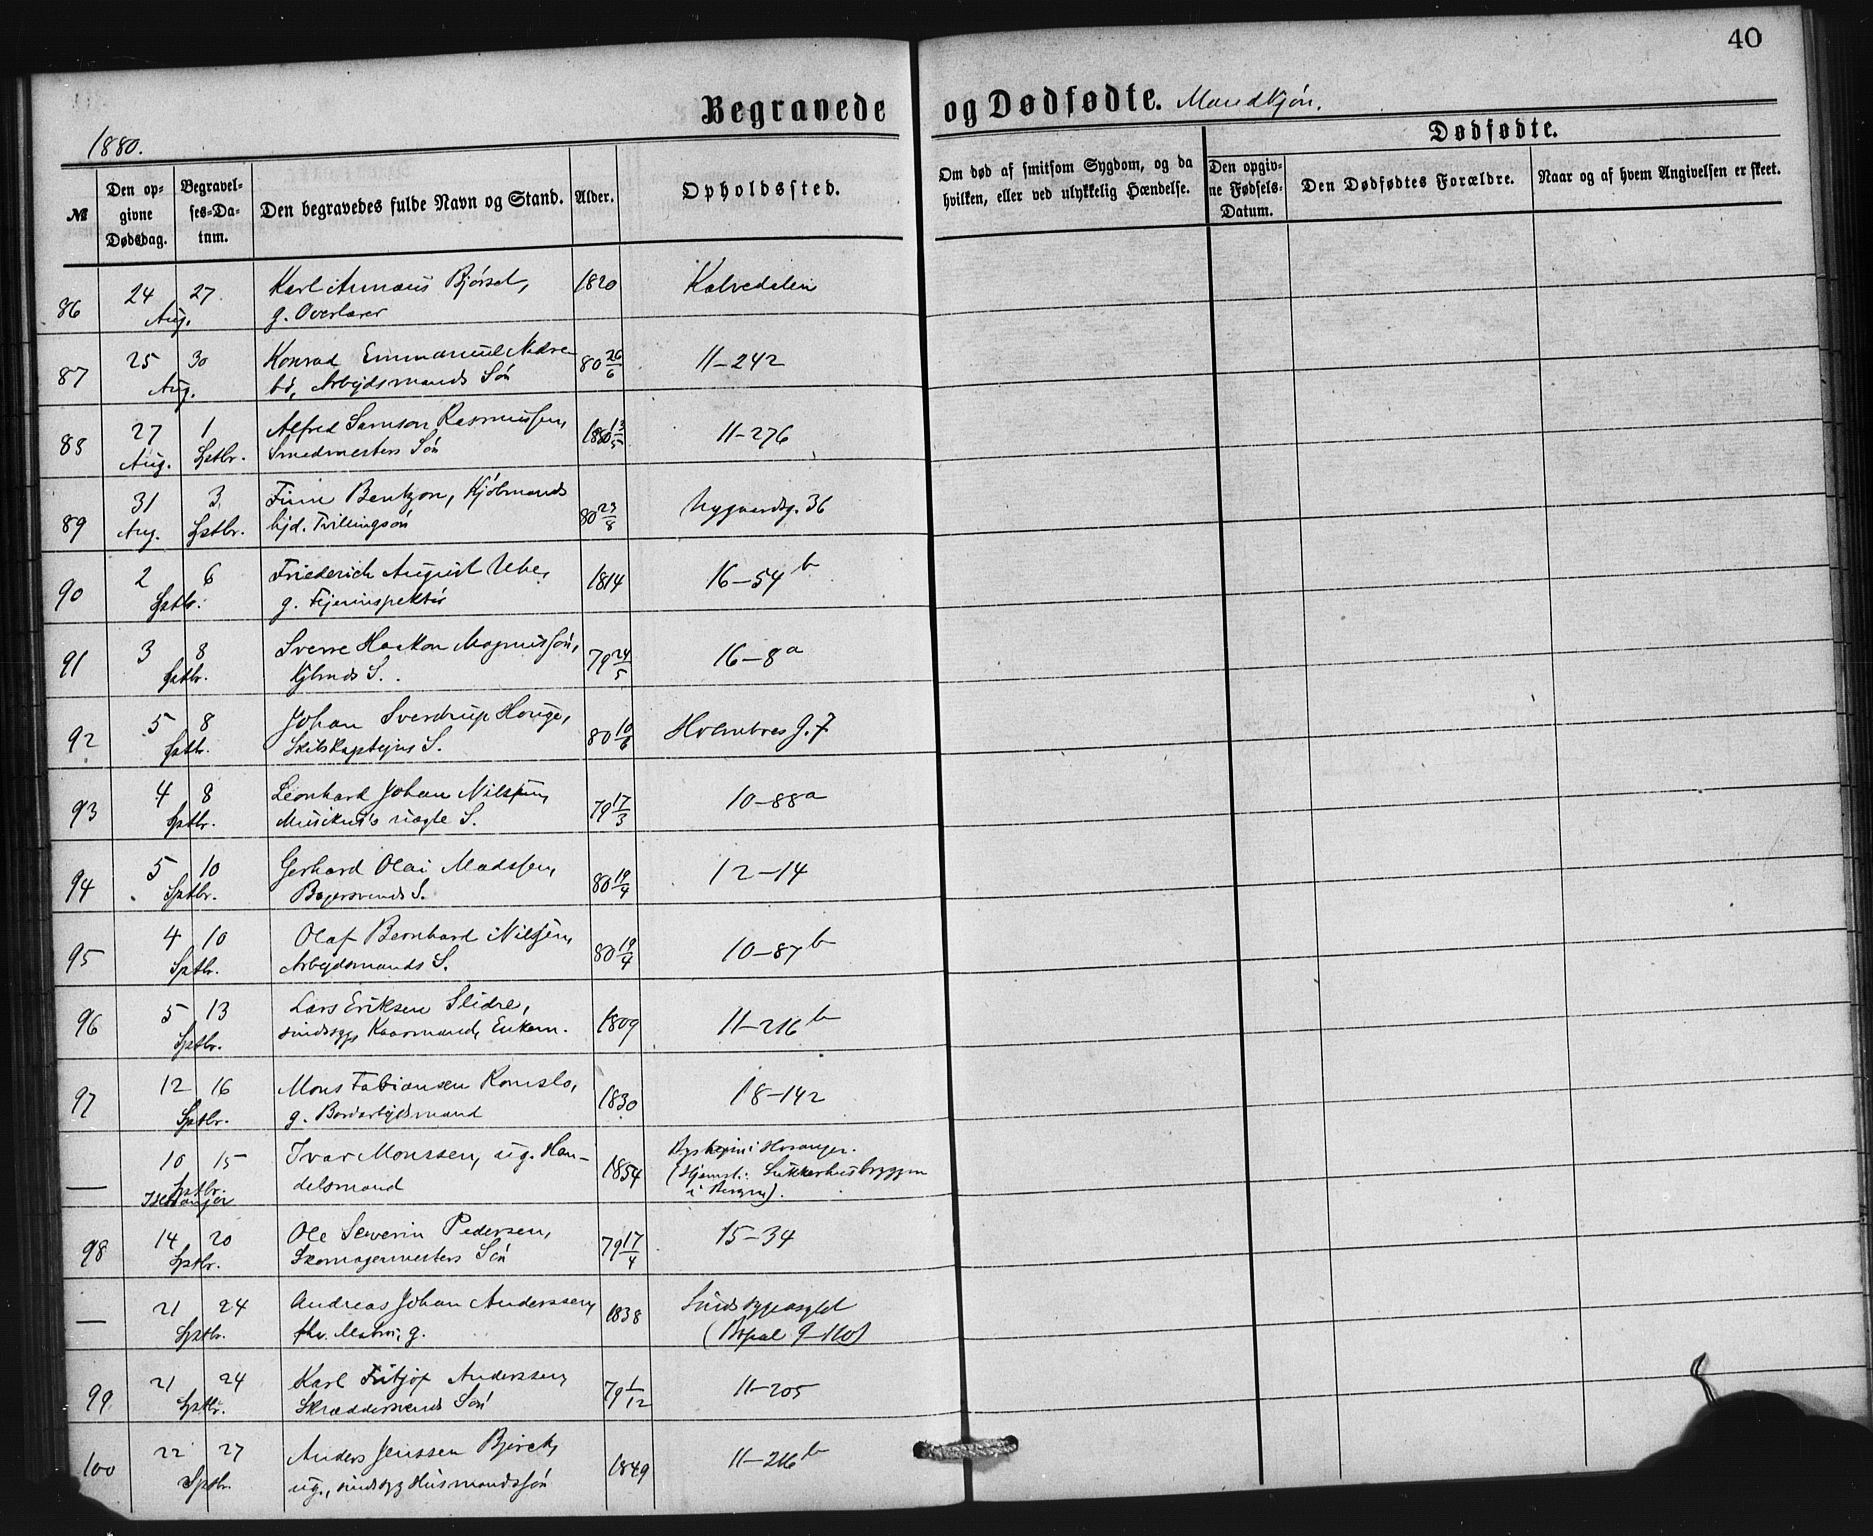 40
Begravede og Dødfødte. Mandkjøn.
1880.
Dødfødte.
№ Den opgivne Dødsdag. Begravelses-Datum. Den begravedes fulde Navn og Stand. Alder. Opholdssted. Om død af smitsom Sygdom, og da hvilken, eller ved ulykkelig Hændelse. Den opgivne Fødsels-Datum. Den Dødfødtes Forældre. Naar og af hvem Angivelsen er skeet.
86 24 27 Karl Bjørset, 1820 Kalvedalen
Aug. g. Overlærer
87 25 30 Konrad Emmanuel Nedre- 80 26/6 11-242
Aug. bø, Arbejdsmands Søn
88 27 1 Alfred Samson Rasmussen, 1880 13/5 11-276
Aug. Septbr. Smedmesters Søn
89 31 3 Finn Bentzon, Kjøbmands 80 23/8 Nygaardsg. 36
Aug. Septbr. Tvillingsøn
90 2 6 Friederich August Uhe, 1814 16-54 b
Septbr. g. Fejerinspektør
91 3 8 Sverre Haakon Magnussøn, 79 24/5 16-8 a
Septbr. Kjbmds S.
92 5 8 Johan Sverdrup Houge, 80 10/6 Holmboes G. 7
Septbr. Skibskaptejns S.
93 4 8 Leonhard Johan Nilssen, 79 17/3 10-88 a
Septbr. Musikus's uægte S.
94 5 10 Gerhard Olai Madssen, 80 19/4 12-14
Septbr. Bagersvends S.
95 4 10 Olaf Bernhard Nilssen, 80 19/4 10-87 b
Septbr. Arbejdsmands S.
96 5 13 Lars Eriksen Slidre, 1809 11-216 b
Septbr. sindssyg, Kaarmand, Enkem.
97 12 16 Mons Fabiansen Romslo, 1830 18-142
Septbr. g. Bordarbejdsmand
— 10 15 Ivar Monssen, ug. Han- 1854 i Hosanger.
Septbr. delsmand (Hjemst.: Sukkerhusbryggen
i Bergen).
98 14 20 Ole Severin Pedersen, 79 17/4 15-34
Septbr. Skomagermesters Søn
— 21 24 Andreas Johan Anderssen, 1838 Sindssygeasylet
Septbr. fhv. Matros, g. (Bopæl 9-110)
99 21 24 Karl Fritjof Anderssen, 79 1/12 11-205
Septbr. Skræddersvends Søn
100 22 27 Anders Jenssen Bjerck, 1849 11-216 b
Septbr. ug., sindssyg Husmandssøn